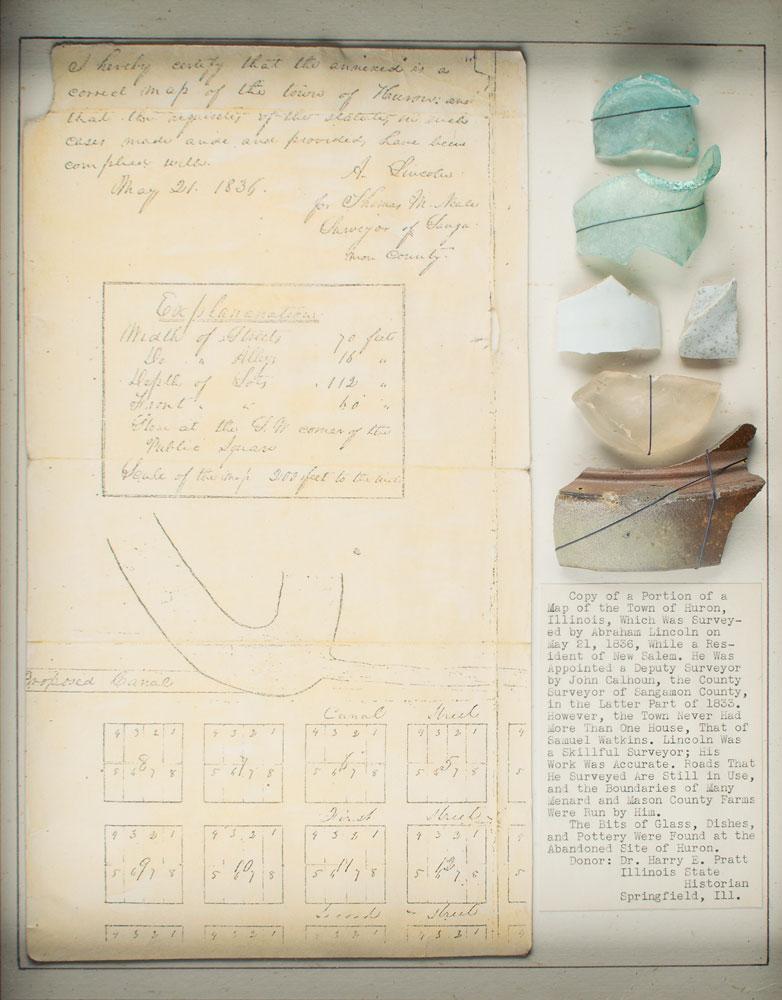 I hereby certify that the annexed is a
correct map of the town of Huron; and
that the requisites of the statute, in such
cases made and provided, have been
complied with.
May 21. 1836.
A. Lincoln
for Thomas M. Neale
Surveyor of Sanga
mon County.
Explananation
Width of Streets 70 feet
Do " Alleys 16 "
Depth of Lots 112 "
Front " " 60 "
at the S.W corner of the
Public Square
Scale of the map 200 feet to the inch
Proposed Canal
Canal Street
4 3 2 1 4 3 2 1 4 3 2 1 4 3 2 1 4
8 7 6 5
5 6 7 8 5 6 7 8 5 6 7 8 5 6 7 8 5
First Street
4 3 2 1 4 3 2 1 4 3 2 1 4 3 2 1 4
9 10 11 12
5 6 7 8 5 6 7 8 5 6 7 8 5 6 7 8 5
Second Street
4 3 2 1 4 3 2 1 4 3 2 1 4 3 2 1 4
Copy of a Portion of a
Map of the Town of Huron,
Illinois, Which Was Survey-
ed by Abraham Lincoln on
May 21, 1836, While a Res-
ident of New Salem. He Was
Appointed a Deputy Surveyor
by John Calhoun, the County
Surveyor of Sangamon County,
in the Latter Part of 1833.
However, the Town Never Had
More Than One House, That of
Samuel Watkins. Lincoln Was
a Skillful Surveyor; His
Work Was Accurate. Roads That
He Surveyed Are Still in Use,
and the Boundaries of Many
Menard and Mason County Farms
Were Run by Him.
The Bits of Glass, Dishes,
and Pottery Were Found at the
Abandoned Site of Huron.
Donor: Dr. Harry E. Pratt
Illinois State
Historian
Springfield, Ill.